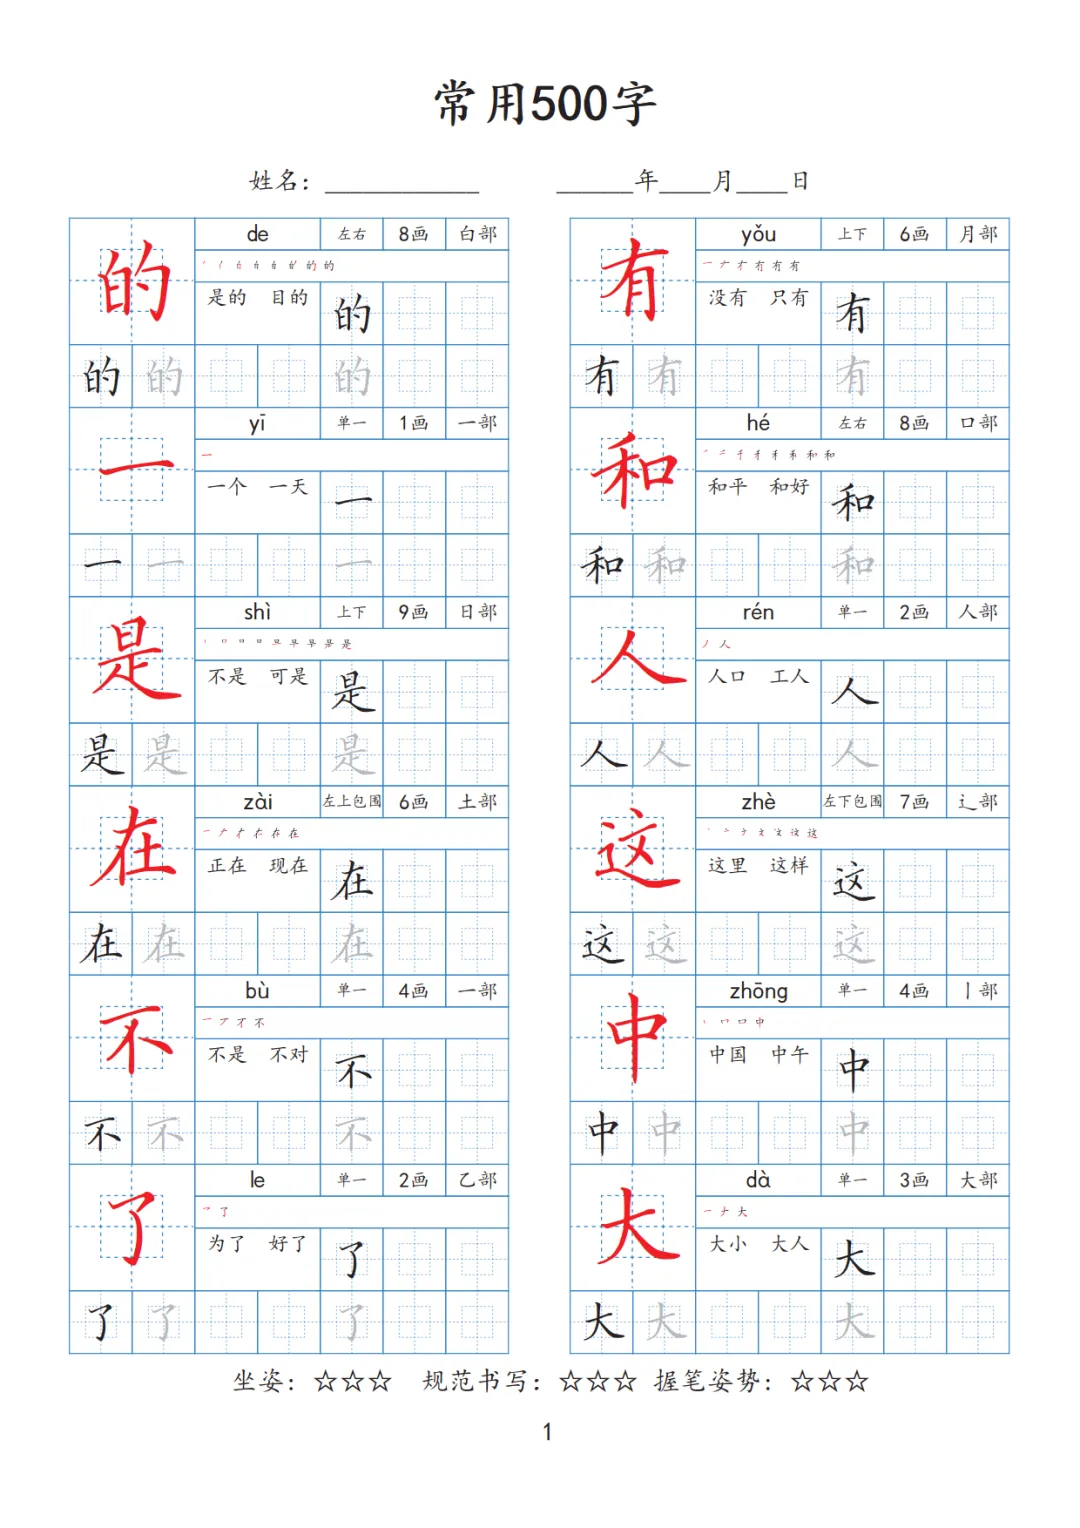 常用500字
姓名：____________ ______年____月____日
的 de 左右 8画 白部
是的 目的 的
的 的 的
一 yī 单一 1画 一部
一
一个 一天 一
一 一 一
是 shì 上下 9画 日部
不是 可是 是
是 是 是
在 zài 左上包围 6画 土部
正在 现在 在
在 在 在
不 bù 单一 4画 一部
不是 不对 不
不 不 不
了 le 单一 2画 乙部
为了 好了 了
了 了 了
有 yǒu 上下 6画 月部
没有 只有 有
有 有 有
和 hé 左右 8画 口部
和平 和好 和
和 和 和
人 rén 单一 2画 人部
丿 人
人口 工人 人
人 人 人
这 zhè 左下包围 7画 辶部
这里 这样 这
这 这 这
中 zhōng 单一 4画 丨部
中国 中午 中
中 中 中
大 dà 单一 3画 大部
一 ナ 大
大小 大人 大
大 大 大
坐姿：☆☆☆ 规范书写：☆☆☆ 握笔姿势：☆☆☆
1